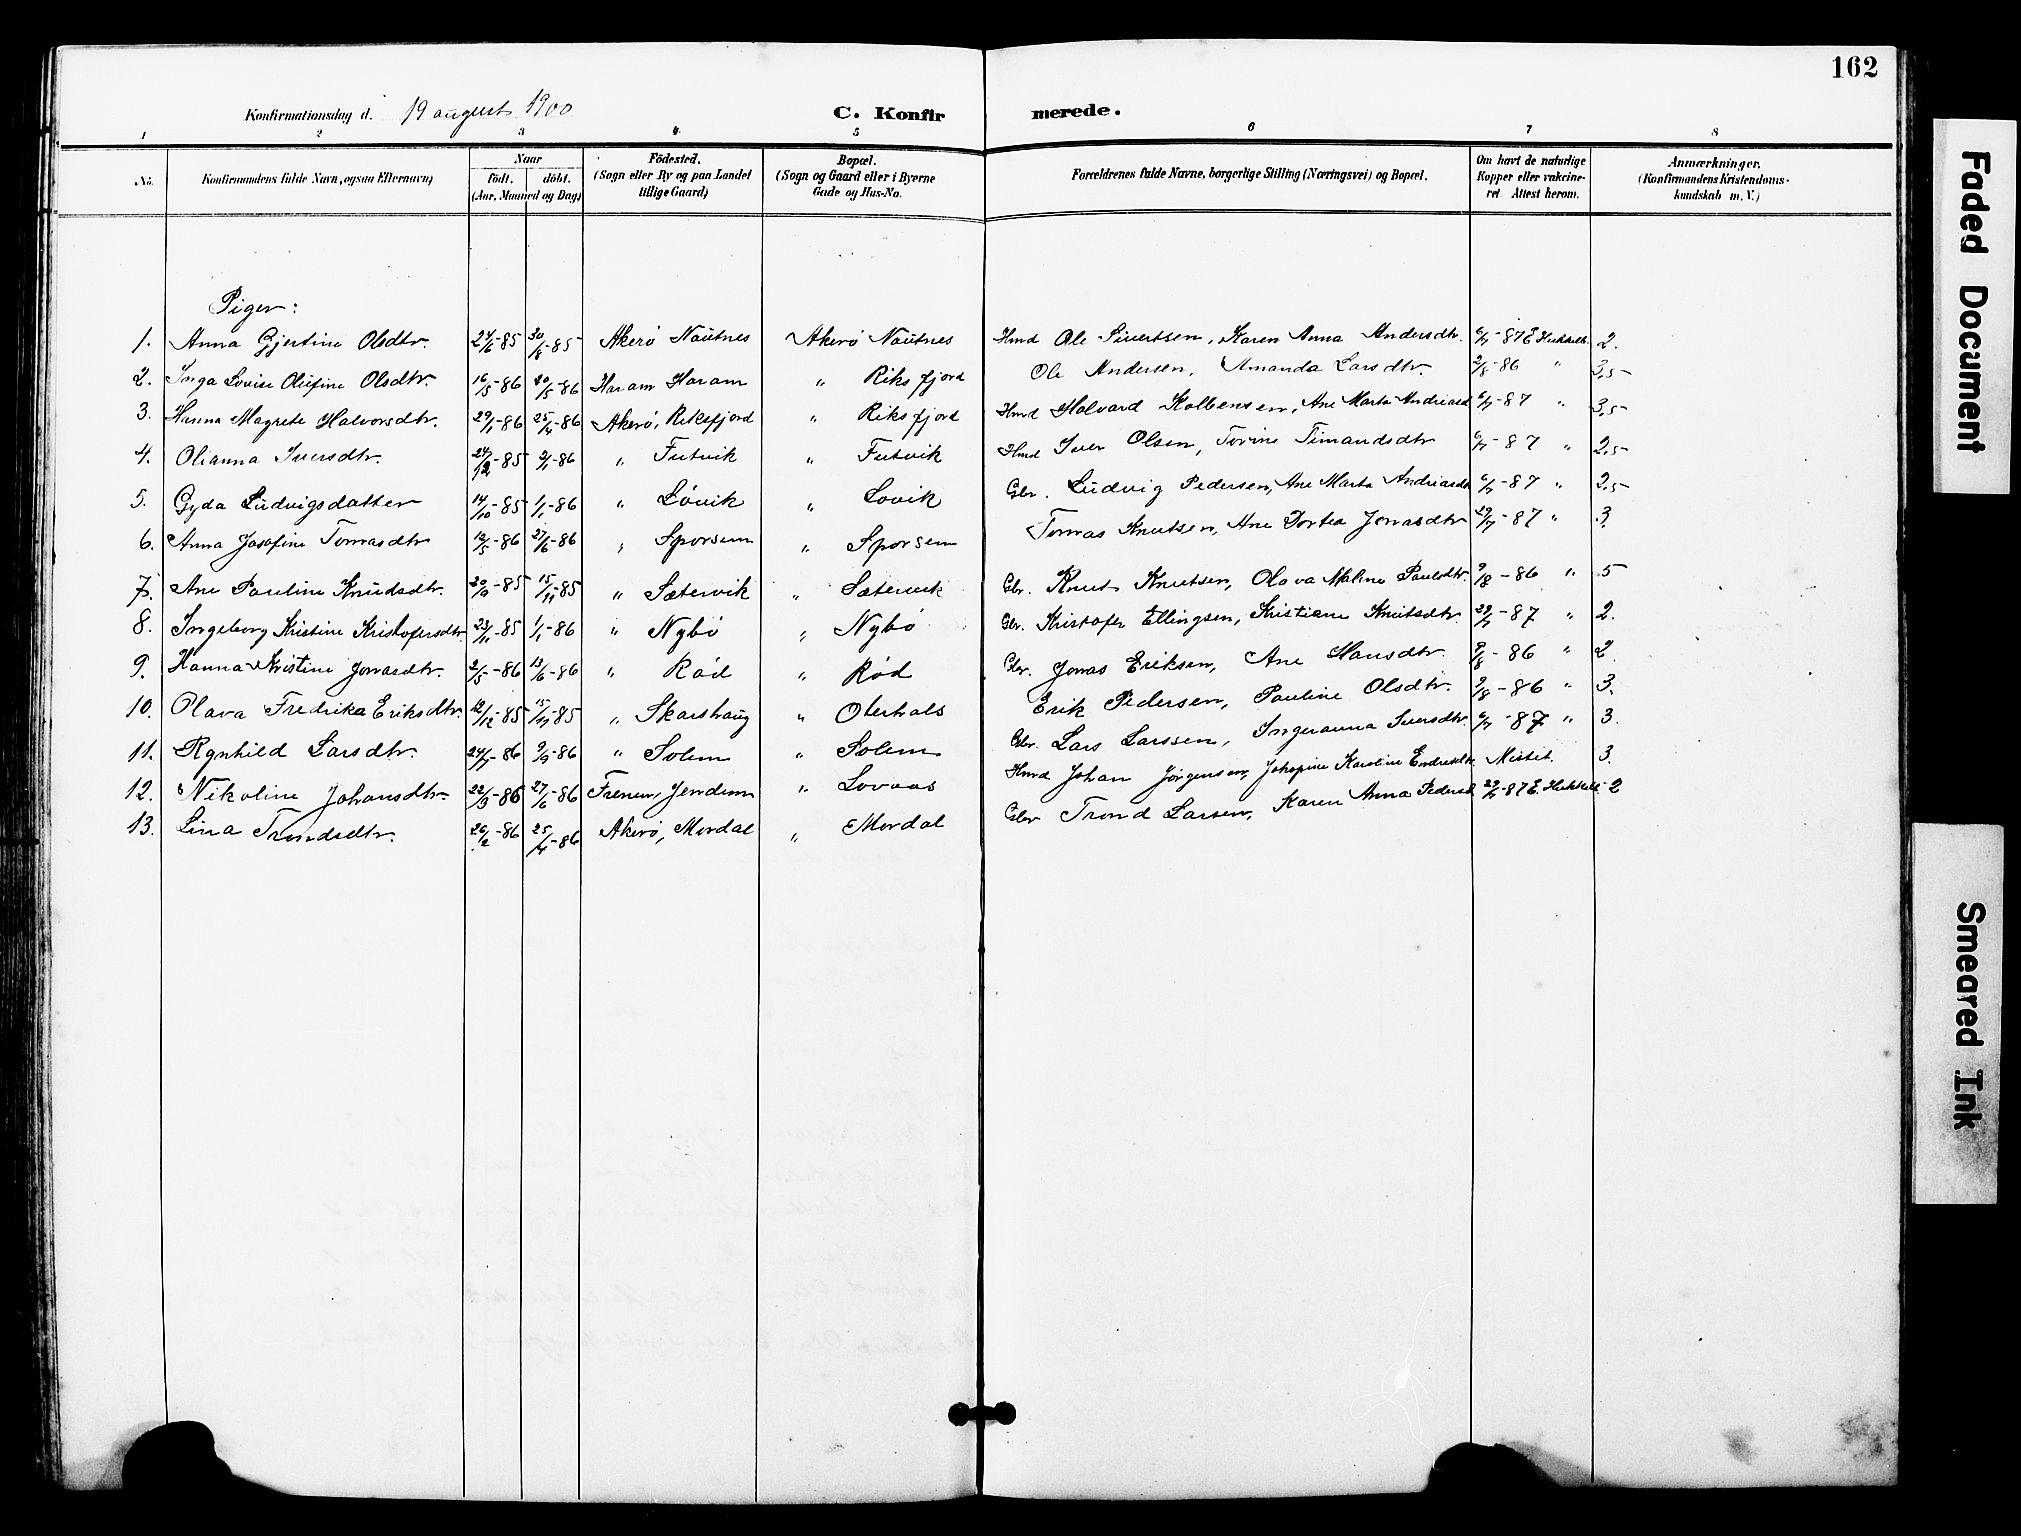 162
Konfirmationsdag d. 19 august 1900
C. Konfirmerede.
1 2 3 4 5 6 7 8
No. Konfirmandens fulde Navn, ogsaa Efternavn) Naar födt. döbt. (Aar, Maaned og Dag) Födested. (Sogn eller By og paa Landet tillige Gaard) Bopæl. (Sogn og Gaard eller i Byerne Gade og Hus-No. Forældrenes fulde Navne, borgerlige Stilling (Næringsvei) og Bopæl. Om havt de naturlige Kopper eller vakcineret Attest herom. Anmærkninger. (Konfirmandens Kristendomskundskab m. V.)
Piger:
1. Anna Gjertine Olsdtr. 24/6-85 30/8-85 Akerø Nautnes Akerø Nautnes Hmd Ole Sivertsen, Karen Anna Andersdtr. 6/7-87 2.
2. Inga Lovise Olufine Olsdtr. 16/5-86 20/5-86 Haram Haram " Riksfjord Ole Andersen, Amanda Larsdtr. 2/8-86 " 3,5
3. Hanna Magrete Halvorsdtr. 29/1-86 25/4-86 Akerø, Riksfjord " Riksfjord Hmd Halvard Kolbensen, Ane Marta Andreasd 6/7-87 " 3,5
4. Olianna Iversdtr. 24/12-85 2/1-86 " Futvik " Futvik Hmd Iver Olsen, Torine Timandsdtr 6/7-87 " 2,5
5. Gyda Ludvigsdatter 14/10-85 1/1-86 " Løvik " Lovik Gbr. Ludvig Pedersen, Ane Marta Andreasdt 6/7-87 " 2,5
6. Anna Josefine Tomasdtr 12/5-86 27/6-86 " Sporsem " Sporsem Tomas Knutsen, Ane Dortea Jonasdtr 29/7-87 " 3.
7. Ane Pauline Knudsdtr. 20/9-85 15/11-85 " Sætervik " Sætervik Gbr. Knut Knutsen, Olava Maline Paulsdtr. 9/8-86 " 5
8. Ingeborg Kristine Kristofersdtr 23/11-85 1/1-86 " Nybø " Nybø Gbr. Kristofer Ellingsen, Kristiane Knutsdtr. 29/7-87 " 2.
9. Hanna Kristine Jonasdtr. 2/5-86 13/6-86 " Rød " Rød Gbr. Jonas Eriksen, Ane Hansdtr. 9/8-86 " 2
10. Olava Fredrika Eriksdtr. 12/12-85 15/11-85 " Skarshaug " Oterhals Erik Pedersen, Pauline Olsdtr. 9/8-86 " 3.
11. Rgnhild Larsdtr. 24/7-86 9/9-86 " Solem " Solem Gbr. Lars Larssen, Ingeranna Iversdtr. 6/7-87 " 3.
12. Nikoline Johansdtr. 22/3-86 27/6-86 Frenen, Jendem " Lovaas Hmd Johan Jørgensen, Josepine Karoline Endresdtr. Mistet. 3.
13. Lina Trondsdtr. 26/2-86 25/4-86 Akerø, Mordal " Mordal Gbr Trond Larsen, Karen Anna Pedersd 29/7-87 2
Faded Document
Smeared Ink